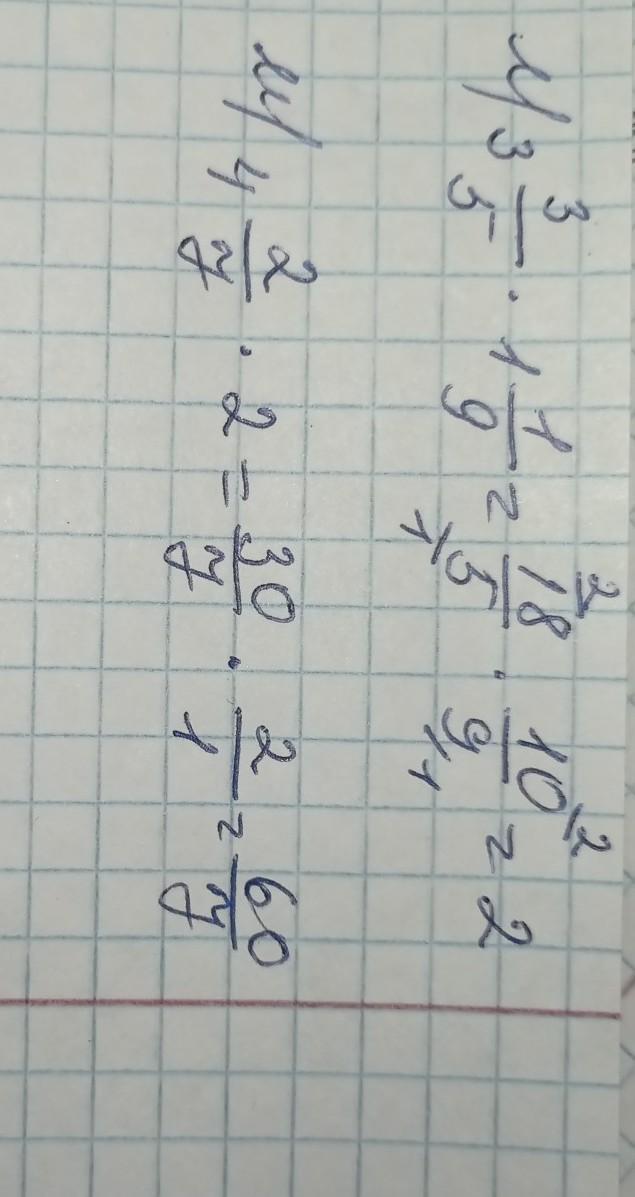 и) 3 3/5 · 1 1/9 = 18/5 · 10/9 = 2
2 2
1 1
й) 4 2/7 · 2 = 30/7 · 2/1 = 60/7